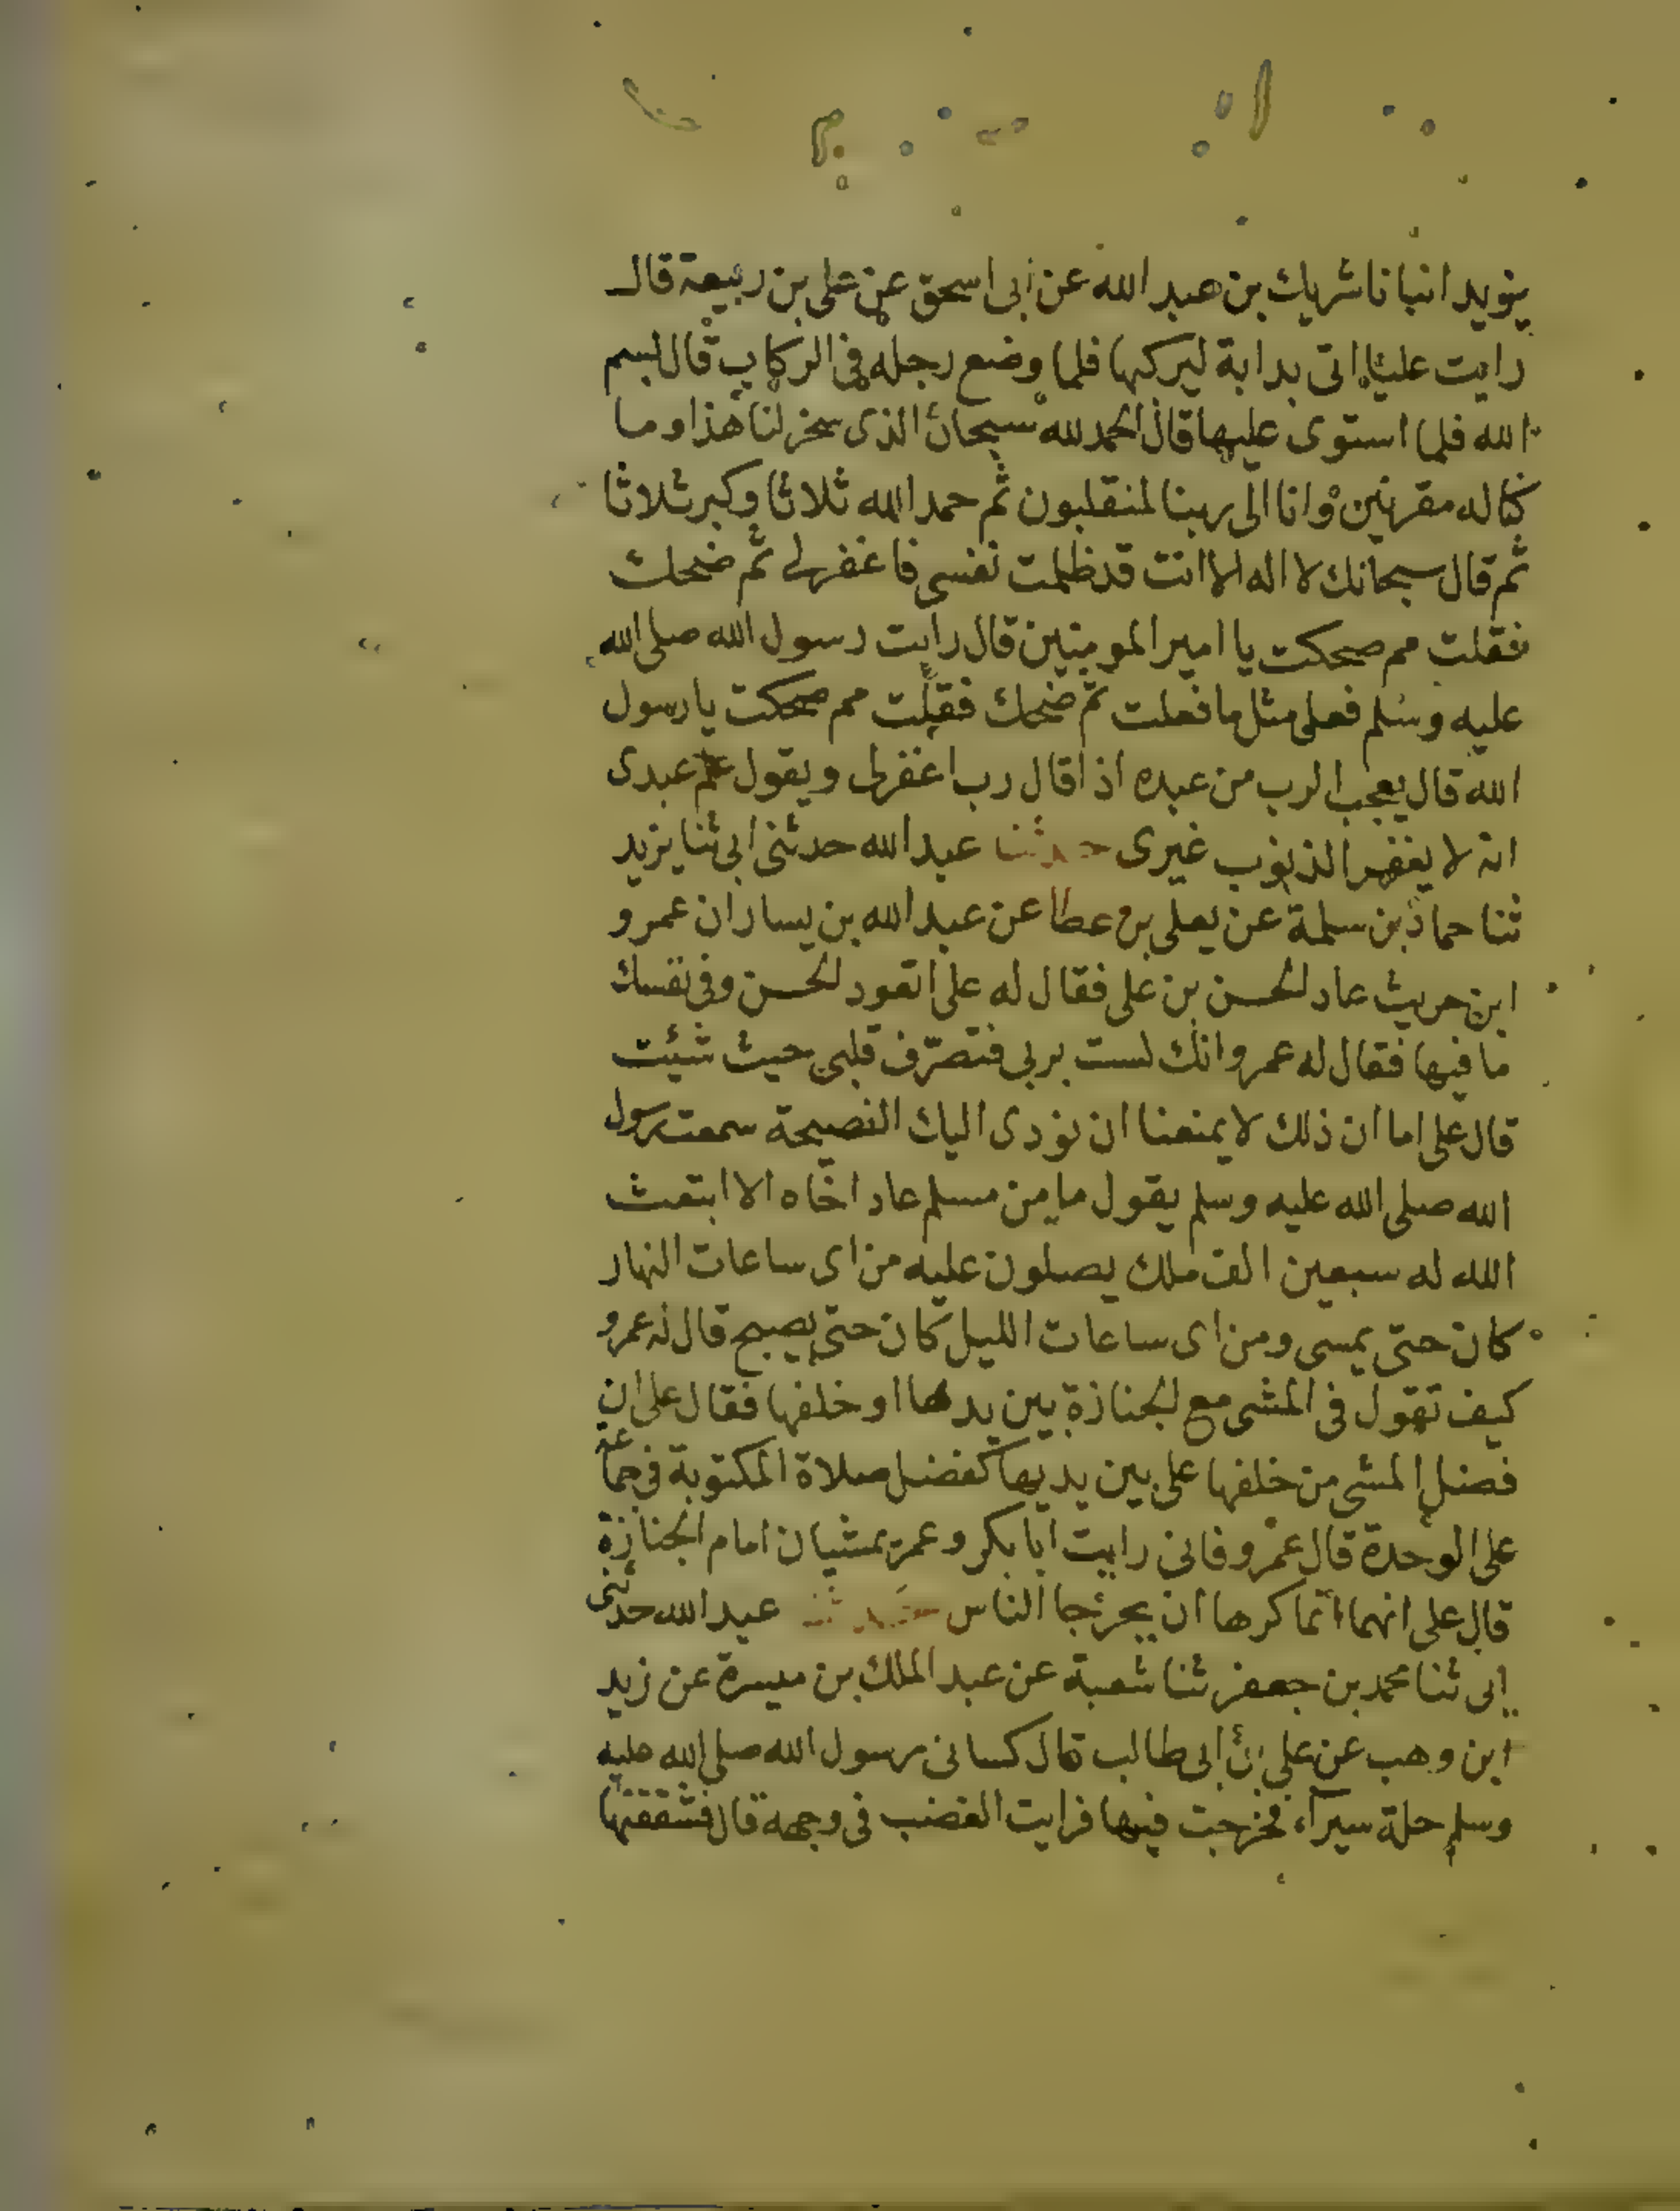 يزيد انبانا شريك بن عبد الله عن ابى اسحق عن على بن ربيعة قال
رايت عليا اتى بدابة ليركبها فلما وضع رجله فى الركاب قال بسم
الله فلما استوى عليها قال الحمد لله سبحان الذى سخر لنا هذا وما
كنا له مقرنين وانا الى ربنا لمنقلبون ثم حمد الله ثلاثا وكبر ثلاثا
ثم قال سبحانك لا اله الا انت قد ظلمت نفسى فاغفر لى ثم ضحك
فقلت مم ضحكت يا امير المومنين قال رايت رسول الله صلى الله
عليه وسلم فعل مثل ما فعلت ثم ضحك فقلت مم ضحكت يا رسول
الله قال يعجب الرب من عبده اذا قال رب اغفر لى ويقول علم عبدى
انه لا يغفر الذنوب غيرى حدثنا عبد الله حدثنى ابى ثنا يزيد
ثنا حماد بن سلمة عن يعلى بن عطا عن عبد الله بن يسار ان عمرو
ابن حريث عاد الحسن بن على فقال له على اتعود الحسن وفى نفسك
ما فيها فقال له عمرو انك لست بربى فتصرّف قلبى حيث شئت
قال على اما ان ذلك لا يمنعنا ان نودى اليك النصيحة سمعت رسول
الله صلى الله عليه وسلم يقول ما من مسلم عاد اخاه الا ابتعث
الله له سبعين الف ملك يصلون عليه من اى ساعات النهار
كان حتى يمسى ومن اى ساعات الليل كان حتى يصبح قال له عمرو
كيف تقول فى المشى مع الجنازة بين يدها او خلفها فقال على ان
فضل المشى من خلفها على بين يديها كفضل صلاة المكتوبة فى جماعة
على الوحدة قال عمرو فانى رايت ابا بكر وعمر يمشيان امام الجنازة
قال على انهما انما كرها ان يحرجا الناس حدثنا عبد الله حدثنى
ابى ثنا محمد بن جعفر ثنا شعبة عن عبد الملك بن ميسرة عن زيد
ابن وهب عن على بن ابى طالب قال كسانى رسول الله صلى الله عليه
وسلم حلة سيرآء فخرجت فيها فرايت الغضب فى وجهه قال فشققتها